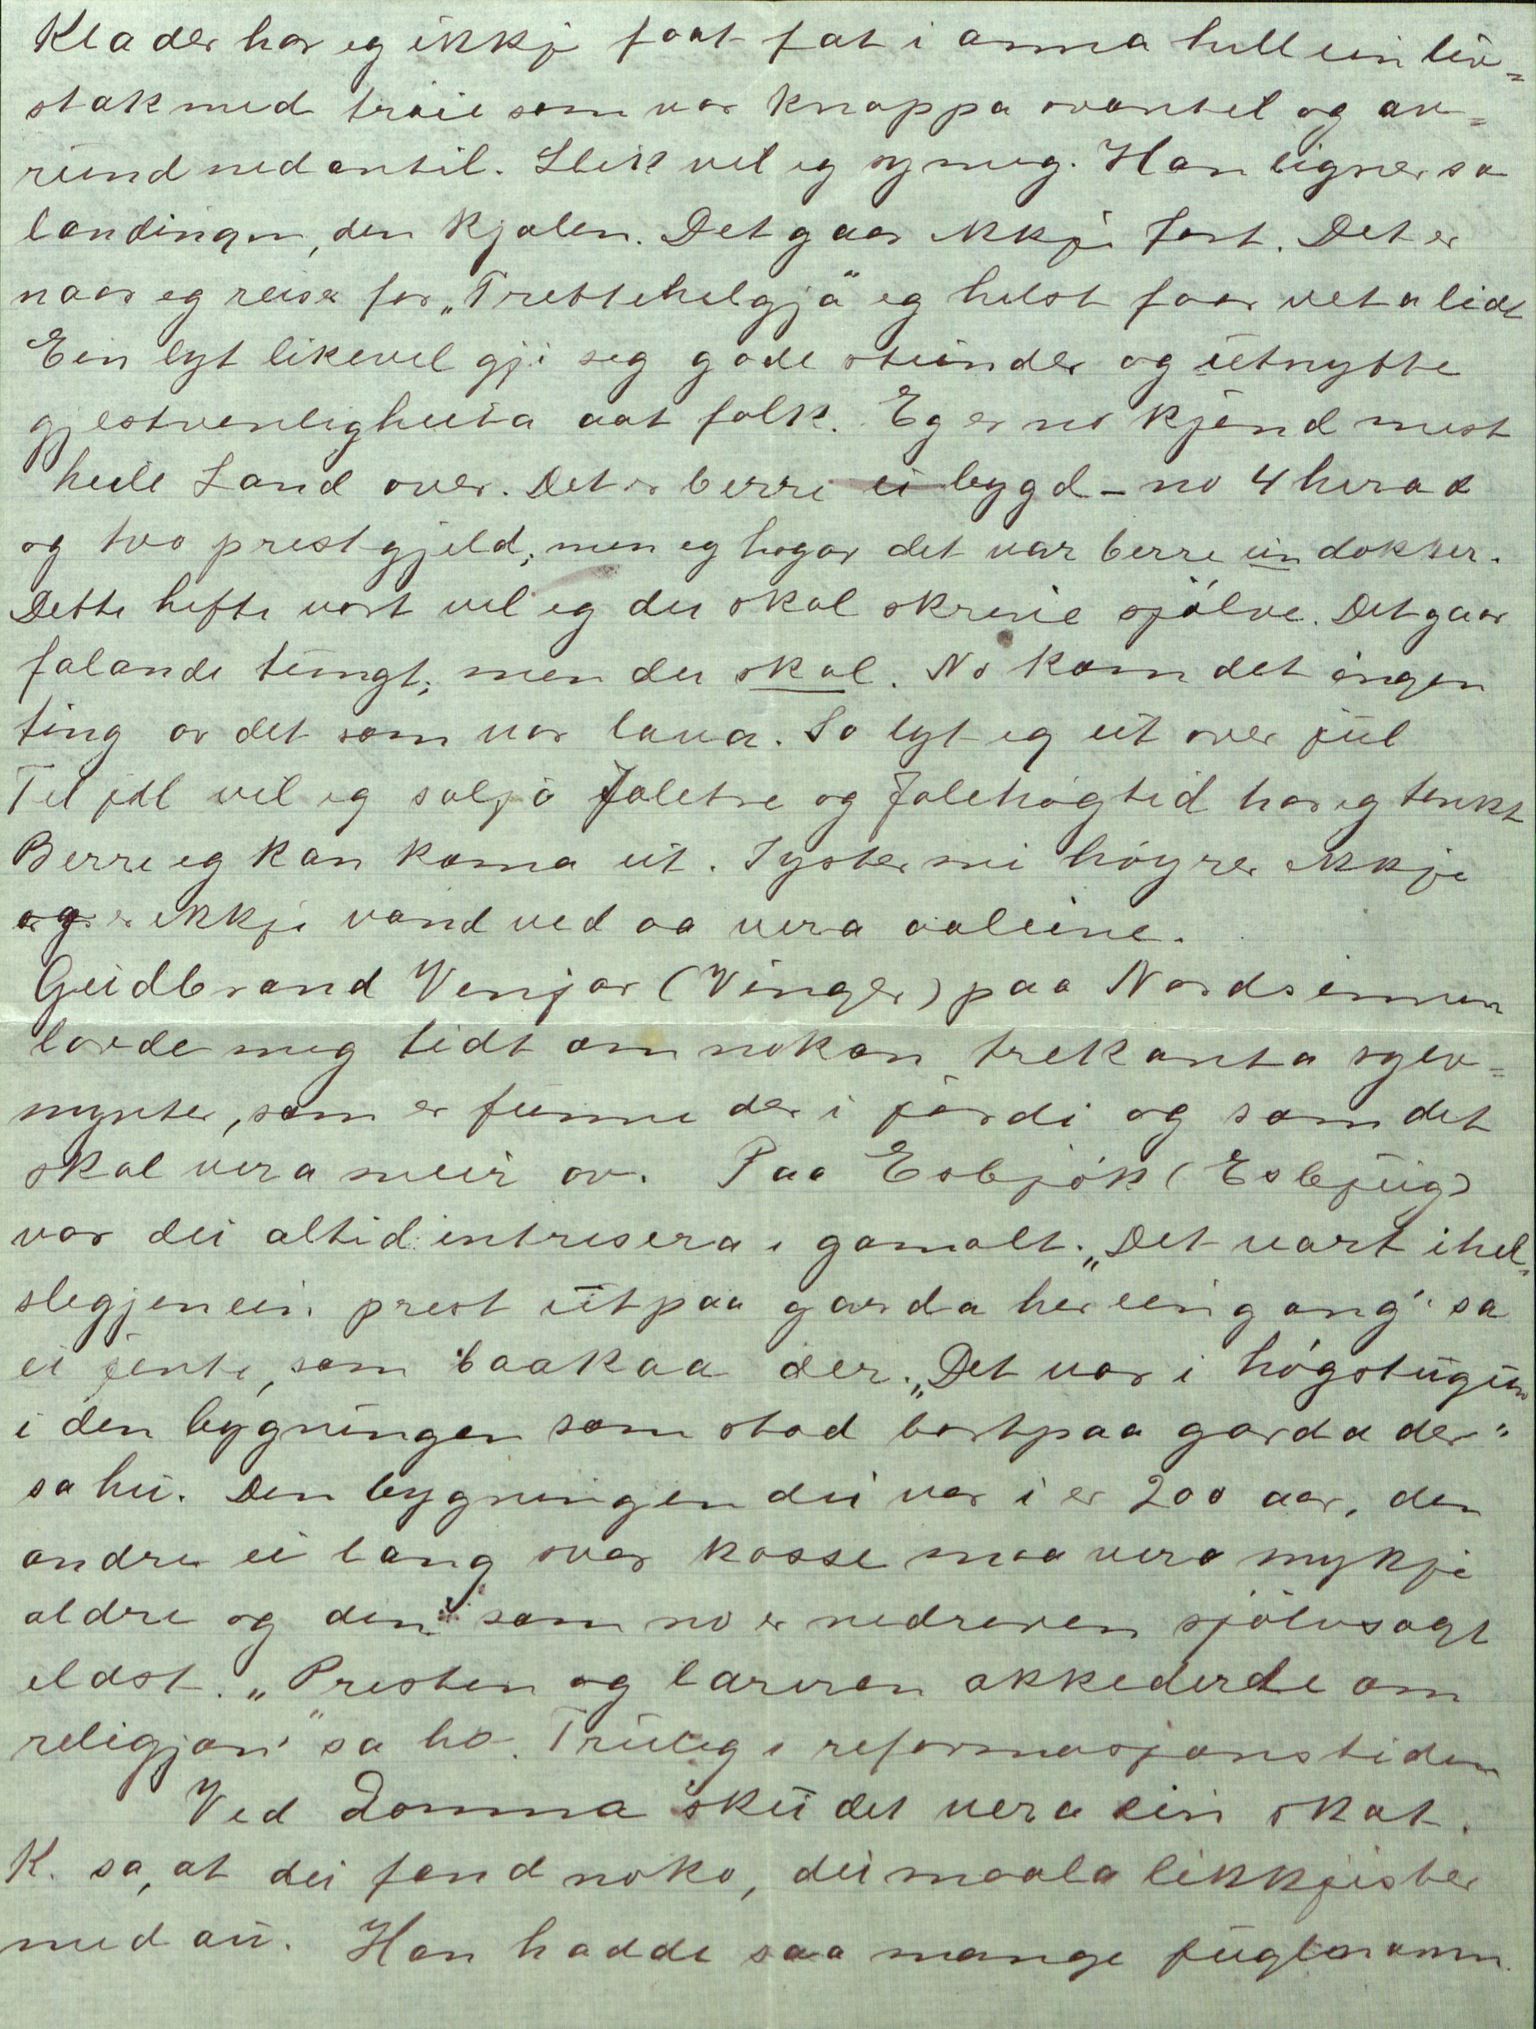 Klader har eg ikkje faat fat i anna hell ein liv=
stak med trøie som var knappa ovantil og av=
rund nedantil. Slik vil eg sy meg. Han ligner sa
landingen, den kjolen. Det gaar ikkje fort. Det er
naar eg reise for „Trettehelgjä“ eg helst faar veta lidt
Ein lyt likevel gji seg gode stunder og utnytte
gjestvenligheita aat folk. Eg er no kjend mest
heile Land over. Det er berre ei bygd – no 4 herad
og tvo prestgjeld; men eg hogar det var berre ein dokter.
Dette hefte vort vil eg du skal skrive sjölve. Det gaar
falande tungt; men du skal. No kom det ingen
ting av det som var lava. So lyt eg ut over jul
Til jul vil eg selja Joletre og Jolehøgtid har eg tenkt
Berre eg kan koma ut. Syster mi høyrer ikkje
og er ikkje vand ved aa vera aaleine.
Gudbrand Venjar (Vinger) paa Nordsinnen
lovde meg tidt om nokon trekanta sylv=
mynter, som er funne der i jordi og som det
skal vera meir av. Paa Esbjøk (Esbjug)
var dei altid intresera i gamalt. „Det vart ihel=
slegjen ein prest utpaa garda her eingong“ sa
ei jente, som baakaa der. „Det var i högstugun
i den bygningen som stod bortpaa garda der“
sa hu. Den bygningen dei var i er 200 aar, den
andre ei lang svar kasse maa vera mykje
aldre og den som no er nedreven sjölvsagt
eldst. „Presten og læreren akkederde om
religjon“ sa ho. Truleg i reformasjonstiden
Ved Domma sku det vera ein skat.
K. sa, at dei fand noko, dei maala likkjister
med au. Han hadde saa mange fuglenamn.